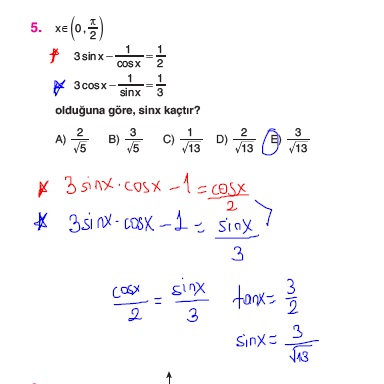 5. x∈(0, π/2)
3 sin x − 1/cos x = 1/2
3 cos x − 1/sin x = 1/3
olduğuna göre, sinx kaçtır?
A) 2/√5 B) 3/√5 C) 1/√13 D) 2/√13 E) 3/√13
3 sinx · cosx − 1 = cosx/2
3 sinx · cosx − 1 = sinx/3
cosx/2 = sinx/3 tanx = 3/2
sinx = 3/√13